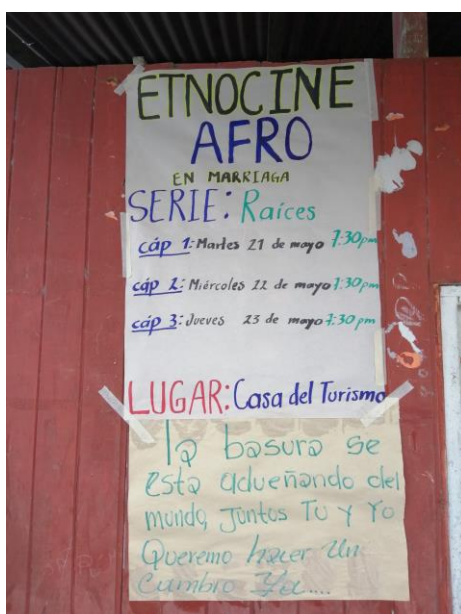 ETNOCINE
AFRO
EN MARRIAGA
SERIE: Raíces
cáp 1: Martes 21 de mayo 7:30pm
cáp 2: Miércoles 22 de mayo 7:30pm
cáp 3: Jueves 23 de mayo 7:30pm
LUGAR: Casa del Turismo
la basura se
esta adueñando del
mundo, Juntos Tu y Yo
Queremo hacer Un
Cambio Ya....